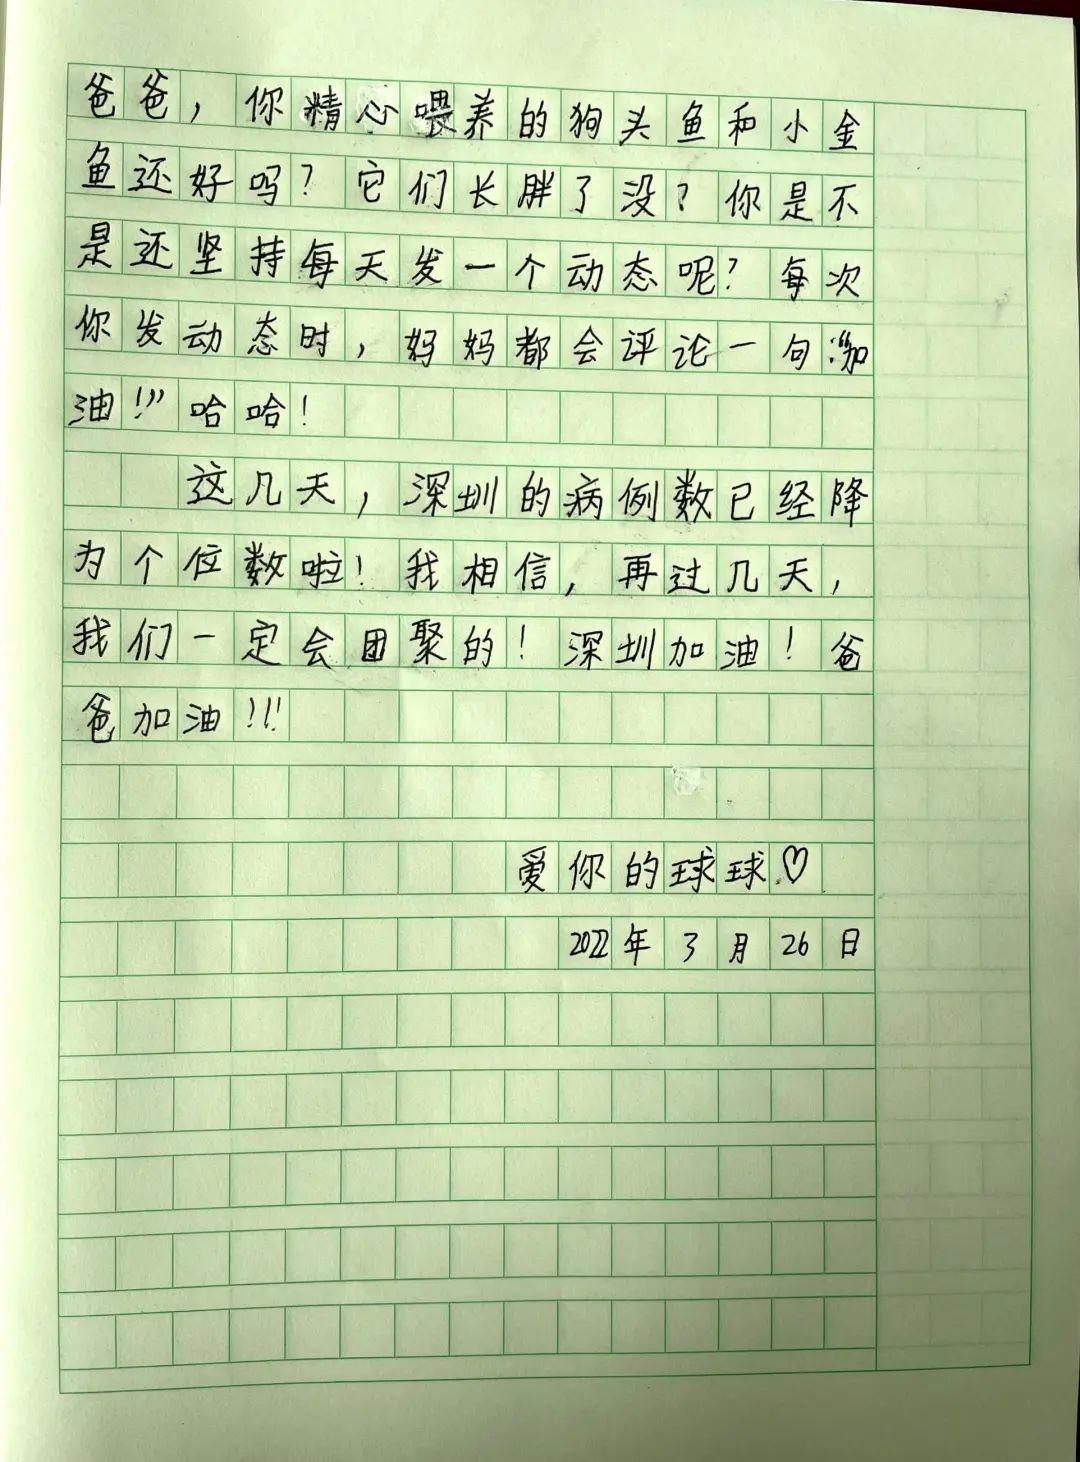 爸爸，你精心喂养的狗头鱼和小金
鱼还好吗？它们长胖了没？你是不
是还坚持每天发一个动态呢？每次
你发动态时，妈妈都会评论一句：“加
油！”哈哈！
这几天，深圳的病例数已经降
为个位数啦！我相信，再过几天，
我们一定会团聚的！深圳加油！爸
爸加油！！！
爱你的球球♡
2022年3月26日